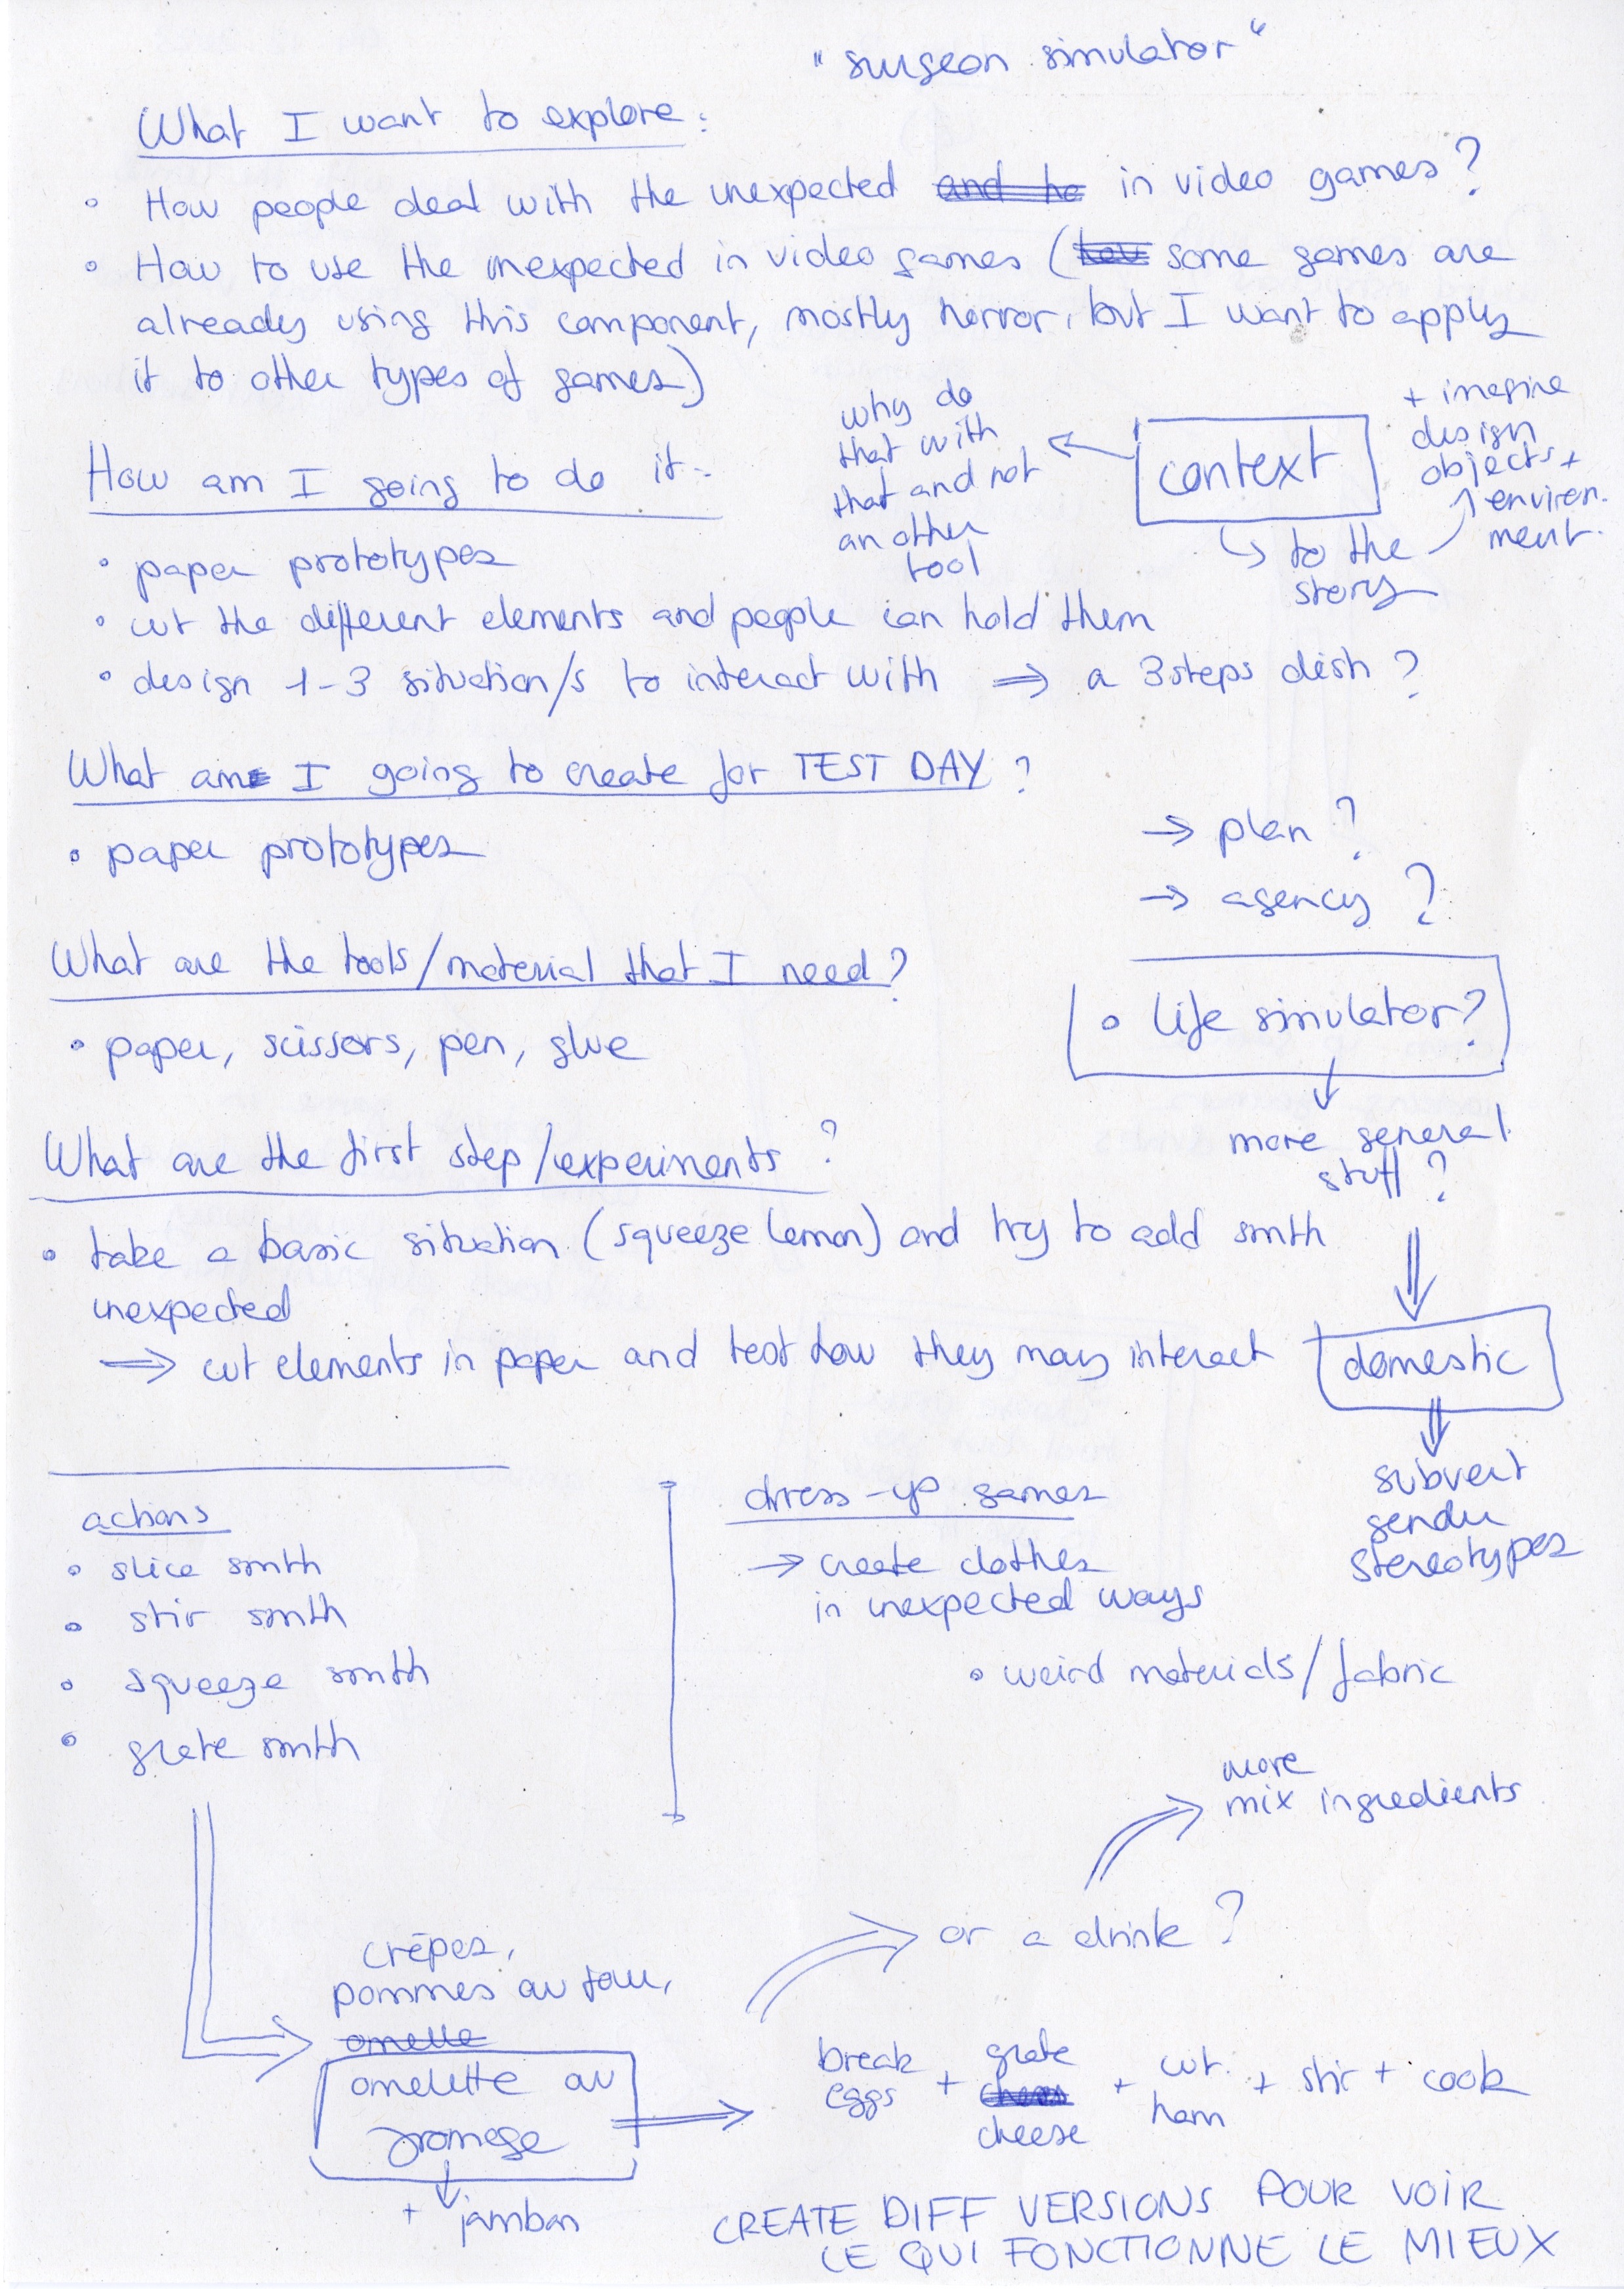 "surgeon simulator"
What I want to explore:
• How people deal with the unexpected and ho in video games?
• How to use the unexpected in video games (how some games are
already using this component, mostly horror, but I want to apply
it to other types of games)
why do
that with
that and not
another
tool
context
+ imagine
design
objects +
environ.
ment.
to the
story
How am I going to do it:
• paper prototypes
• cut the different elements and people can hold them
• design 1-3 situation/s to interact with ⇒ a 3 steps dish?
What am I going to create for TEST DAY?
• paper prototypes
→ plan?
→ agency?
What are the tools/material that I need?
• paper, scissors, pen, glue
• life simulator?
more general
stuff?
What are the first step/experiments?
• take a basic situation (squeeze lemon) and try to add smth
unexpected
⇒ cut elements in paper and test how they may interact
domestic
subvert
gender
stereotypes
actions
• slice smth
• stir smth
• squeeze smth
• grate smth
dress-up games
→ create clothes
in unexpected ways
• weird materials/fabric
more
mix ingredients
or a drink?
crêpes,
pommes au four,
omelle
omelette au
fromage
+ jambon
break
eggs
+ grate
cheese
+ cut
ham
+ stir + cook
CREATE DIFF VERSIONS POUR VOIR
CE QUI FONCTIONNE LE MIEUX